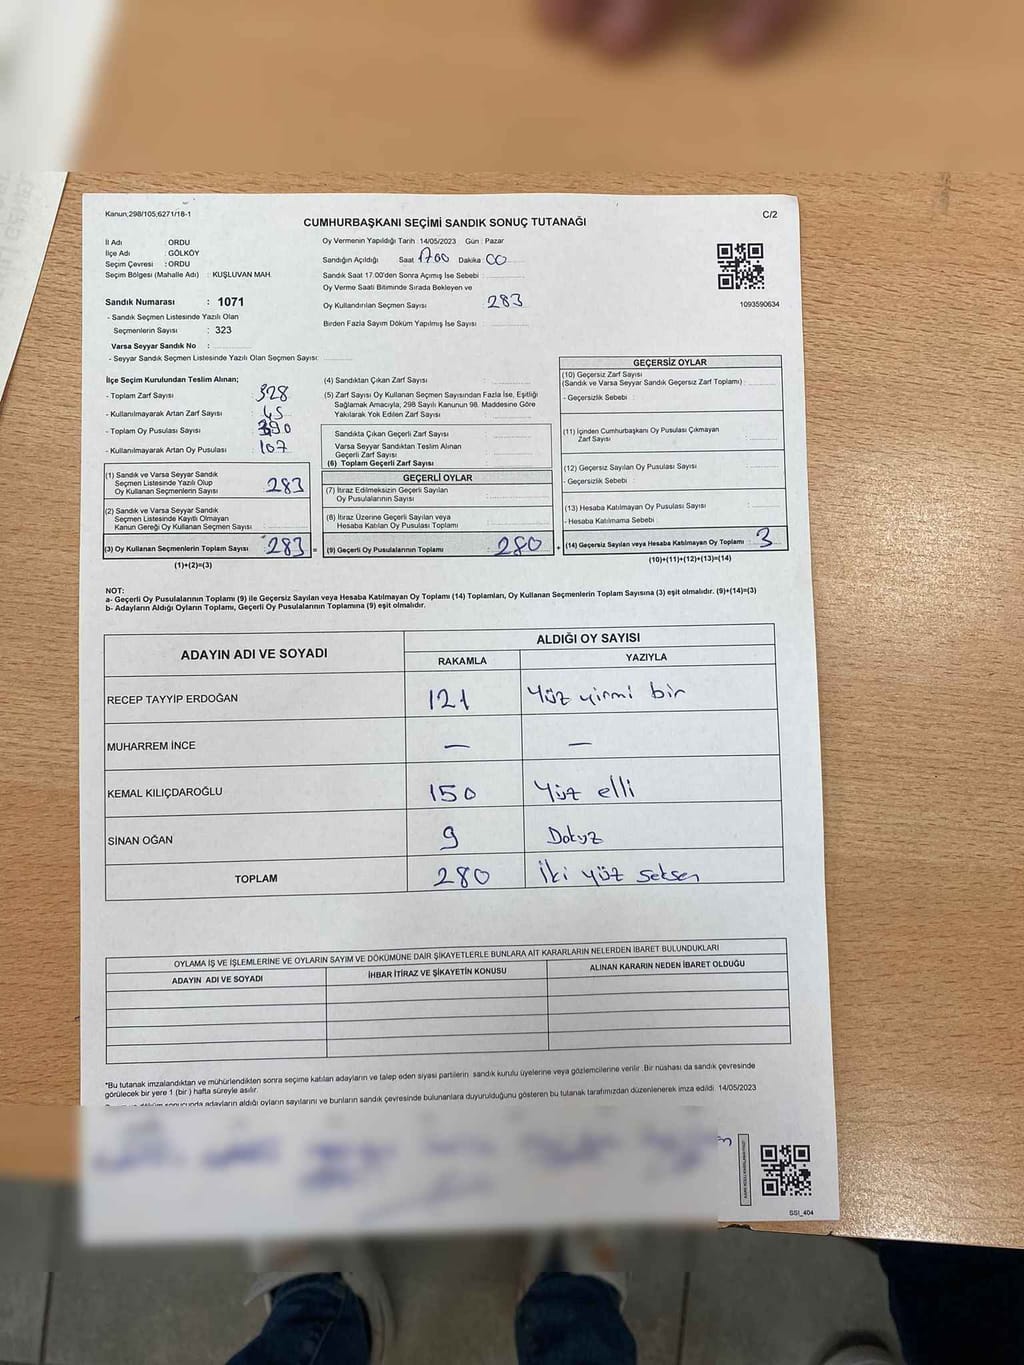 Kanun;298/105;6271/18-1
C/2
CUMHURBAŞKANI SEÇİMİ SANDIK SONUÇ TUTANAĞI
İl Adı : ORDU
İlçe Adı : GÖLKÖY
Seçim Çevresi : ORDU
Seçim Bölgesi (Mahalle Adı) : KUŞLUVAN MAH.
Sandık Numarası : 1071
- Sandık Seçmen Listesinde Yazılı Olan
Seçmenlerin Sayısı : 323
Varsa Seyyar Sandık No :
- Seyyar Sandık Seçmen Listesinde Yazılı Olan Seçmen Sayısı:
Oy Vermenin Yapıldığı Tarih : 14/05/2023 Gün : Pazar
Sandığın Açıldığı Saat 1700 Dakika 00
Sandık Saat 17.00'den Sonra Açımış İse Sebebi :
Oy Verme Saati Bitiminde Sırada Bekleyen ve
Oy Kullandırılan Seçmen Sayısı 283
Birden Fazla Sayım Döküm Yapılmış İse Sayısı :
1093590634
İlçe Seçim Kurulundan Teslim Alınan;
- Toplam Zarf Sayısı : 328
- Kullanılmayarak Artan Zarf Sayısı : 45
- Toplam Oy Pusulası Sayısı : 390
- Kullanılmayarak Artan Oy Pusulası : 107
(1) Sandık ve Varsa Seyyar Sandık
Seçmen Listesinde Yazılı Olup
Oy Kullanan Seçmenlerin Sayısı : 283
(2) Sandık ve Varsa Seyyar Sandık
Seçmen Listesinde Kayıtlı Olmayan
Kanun Gereği Oy Kullanan Seçmen Sayısı :
(3) Oy Kullanan Seçmenlerin Toplam Sayısı : 283 =
(1)+(2)=(3)
(4) Sandıktan Çıkan Zarf Sayısı :
(5) Zarf Sayısı Oy Kullanan Seçmen Sayısından Fazla İse, Eşitliği
Sağlamak Amacıyla, 298 Sayılı Kanunun 98. Maddesine Göre
Yakılarak Yok Edilen Zarf Sayısı :
Sandıkta Çıkan Geçerli Zarf Sayısı :
Varsa Seyyar Sandıktan Teslim Alınan
Geçerli Zarf Sayısı :
(6) Toplam Geçerli Zarf Sayısı :
GEÇERLİ OYLAR
(7) İtiraz Edilmeksizin Geçerli Sayılan
Oy Pusulalarının Sayısı :
(8) İtiraz Üzerine Geçerli Sayılan veya
Hesaba Katılan Oy Pusulası Toplamı :
(9) Geçerli Oy Pusulalarının Toplamı : 280 +
GEÇERSİZ OYLAR
(10) Geçersiz Zarf Sayısı
(Sandık ve Varsa Seyyar Sandık Geçersiz Zarf Toplamı) :
- Geçersizlik Sebebi :
(11) İçinden Cumhurbaşkanı Oy Pusulası Çıkmayan
Zarf Sayısı :
(12) Geçersiz Sayılan Oy Pusulası Sayısı :
- Geçersizlik Sebebi :
(13) Hesaba Katılmayan Oy Pusulası Sayısı :
- Hesaba Katılmama Sebebi :
(14) Geçersiz Sayılan veya Hesaba Katılmayan Oy Toplamı : 3
(10)+(11)+(12)+(13)=(14)
NOT:
a- Geçerli Oy Pusulalarının Toplamı (9) ile Geçersiz Sayılan veya Hesaba Katılmayan Oy Toplamı (14) Toplamları, Oy Kullanan Seçmenlerin Toplam Sayısına (3) eşit olmalıdır. (9)+(14)=(3)
b- Adayların Aldığı Oyların Toplamı, Geçerli Oy Pusulalarının Toplamına (9) eşit olmalıdır.
ADAYIN ADI VE SOYADI
ALDIĞI OY SAYISI
RAKAMLA YAZIYLA
RECEP TAYYİP ERDOĞAN 121 Yüz yirmi bir
MUHARREM İNCE — —
KEMAL KILIÇDAROĞLU 150 Yüz elli
SİNAN OĞAN 9 Dokuz
TOPLAM 280 İki yüz seksen
OYLAMA İŞ VE İŞLEMLERİNE VE OYLARIN SAYIM VE DÖKÜMÜNE DAİR ŞİKAYETLERLE BUNLARA AİT KARARLARIN NELERDEN İBARET BULUNDUKLARI
ADAYIN ADI VE SOYADI İHBAR İTİRAZ VE ŞİKAYETİN KONUSU ALINAN KARARIN NEDEN İBARET OLDUĞU
*Bu tutanak imzalandıktan ve mühürlendikten sonra seçime katılan adayların ve talep eden siyasi partilerin sandık kurulu üyelerine veya gözlemcilerine verilir. Bir nüshası da sandık çevresinde
görülecek bir yere 1 (bir) hafta süreyle asılır.
döküm sonucunda adayların aldığı oyların sayılarını ve bunların sandık çevresinde bulunanlara duyurulduğunu gösteren bu tutanak tarafımızdan düzenlenerek imza edildi. 14/05/2023
SSI_404